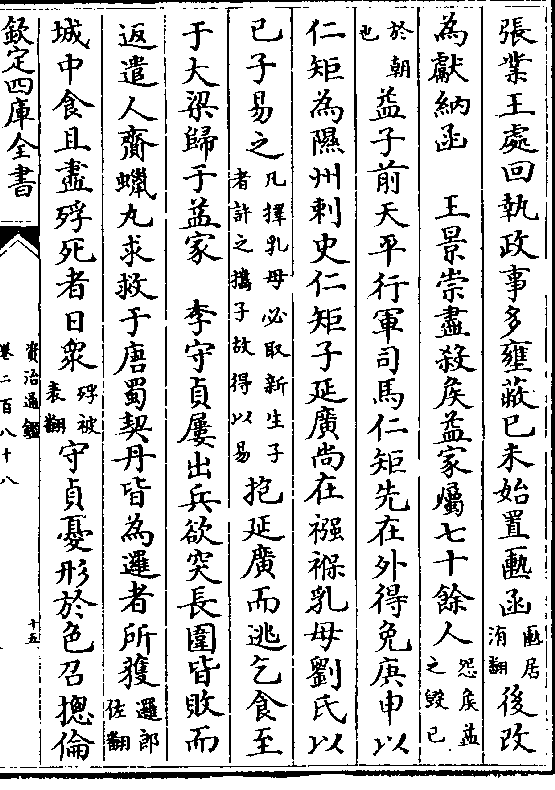 張業王處回執政事多壅蔽己未始置匭函匭居洧翻後改
為獻納函　王景崇盡殺矦益家屬七十餘人怨矦益之毀己
於朝也益子前天平行軍司馬仁矩先在外得免庚申以
仁矩為隰州刺史仁矩子延廣尚在襁褓乳母劉氏以
己子易之凡擇乳母必取新生子者許之攜子故得以易抱延廣而逃乞食至
于大梁歸于益家　李守貞屢出兵欲突長圍皆敗而
返遣人齎蠟丸求救于唐蜀契丹皆為邏者所獲邏郎佐翻
城中食且盡殍死者日衆殍被表翻守貞憂形於色召摠倫
欽定四庫全書
資治通鑑
卷二百八十八
十五